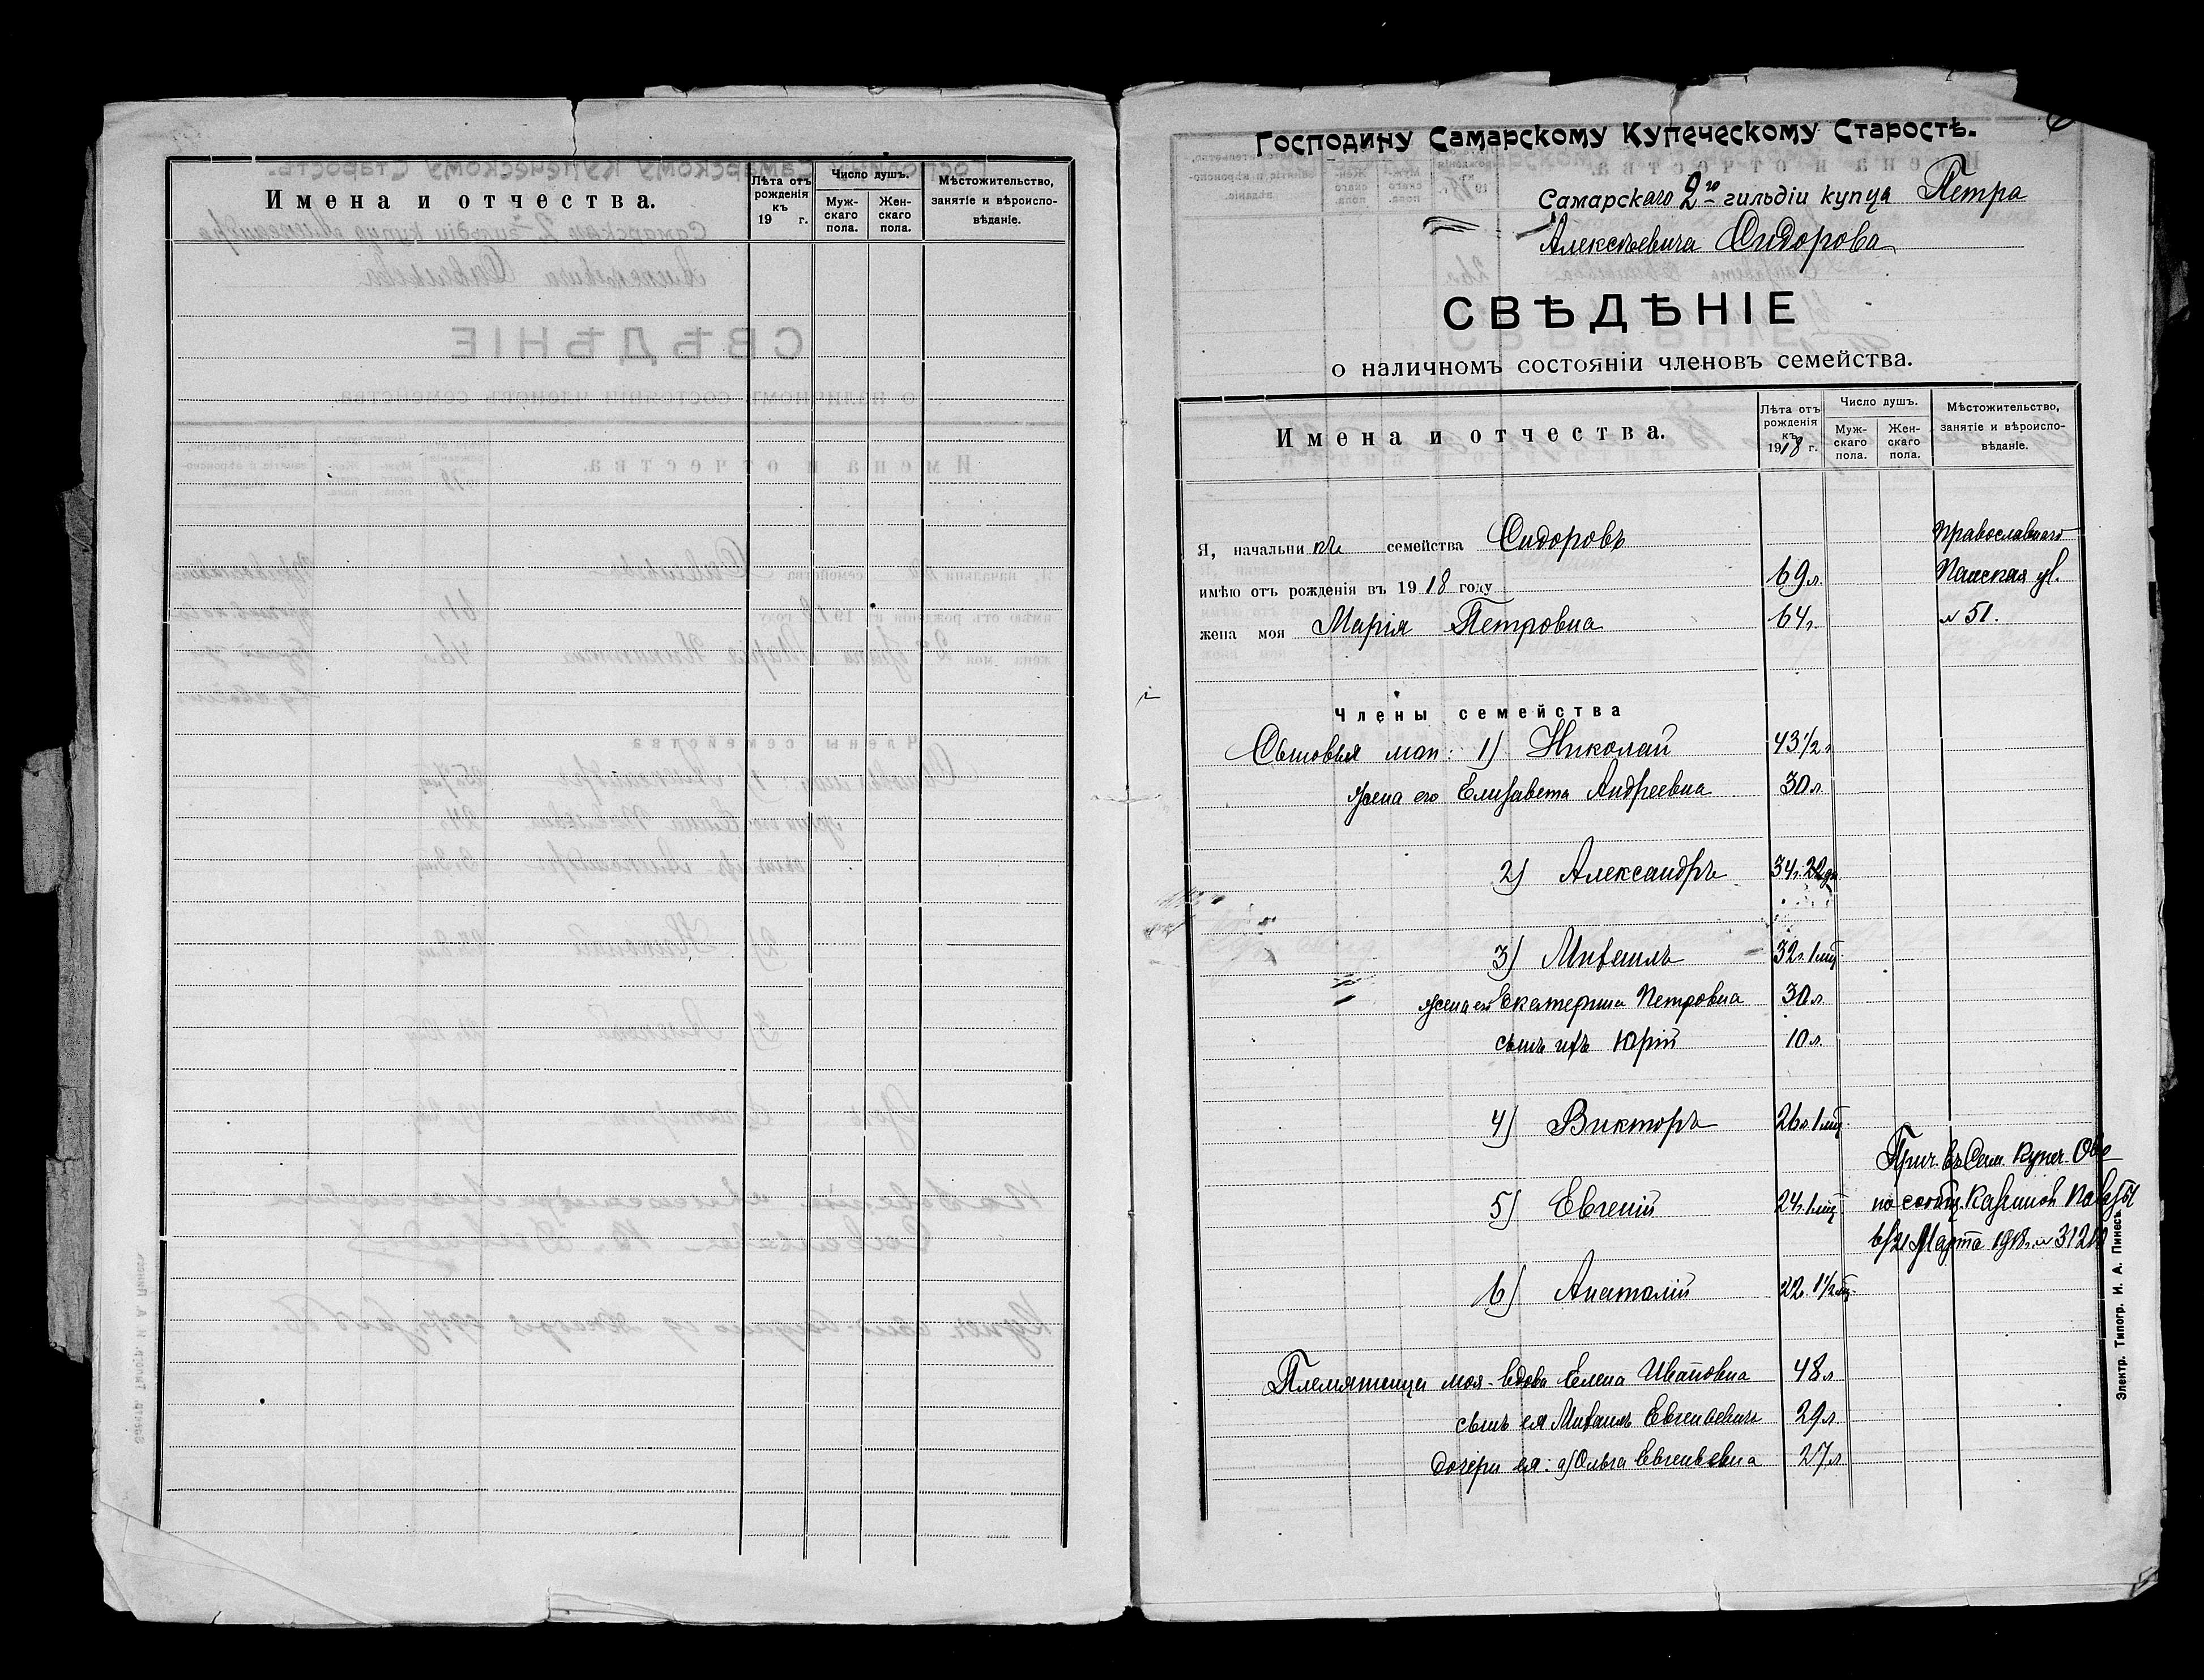 Имена и отчества.
Лѣта отъ рожденія къ 19 г.
Число душъ.
Муж-скаго пола.
Жен-скаго пола.
Мѣстожительство, занятіе и вѣроиспо-вѣданіе.
Господину Самарскому Купеческому Старостѣ.
Самарскаго 2го гильдіи купца Петра
Алексѣевича Сидорова
СВѢДѢНІЕ
о наличномъ состояніи членовъ семейства.
Имена и отчества.
Лѣта отъ рожденія къ 1918 г.
Число душъ.
Муж-скаго пола.
Жен-скаго пола.
Мѣстожительство, занятіе и вѣроиспо-вѣданіе.
Я, начальникъ семейства Сидоровъ Православнаго
имѣю отъ рожденія въ 1918 году 69 л. Панская ул.
жена моя Марія Петровна 64 г. № 51.
Члены семейства
Сыновья мои: 1) Николай 43 1/2 г
жена его Елизавета Андреевна 30 л.
2) Александръ 34 г.
3) Михаилъ 32 г. 1 мц
жена его Екатерина Петровна 30 л.
сынъ ихъ Юрій 10 л.
4) Викторъ 26 л. 1 мц
Прич. въ Сам. Купеч. Об-во
5) Евгеній 24 г. 1 мц по сообщ. Казенной Палаты
21 Марта 1918 г. №
6) Анатолій 22 г. 1 1/2 мц.
Племянница моя - вдова Елена Ивановна 48 л
сынъ ея Михаилъ Евгеньевичъ 29 л
дочери ея: а) Ольга Евгеньевна 27 л
Электр. Типогр. И. А. Пинесъ